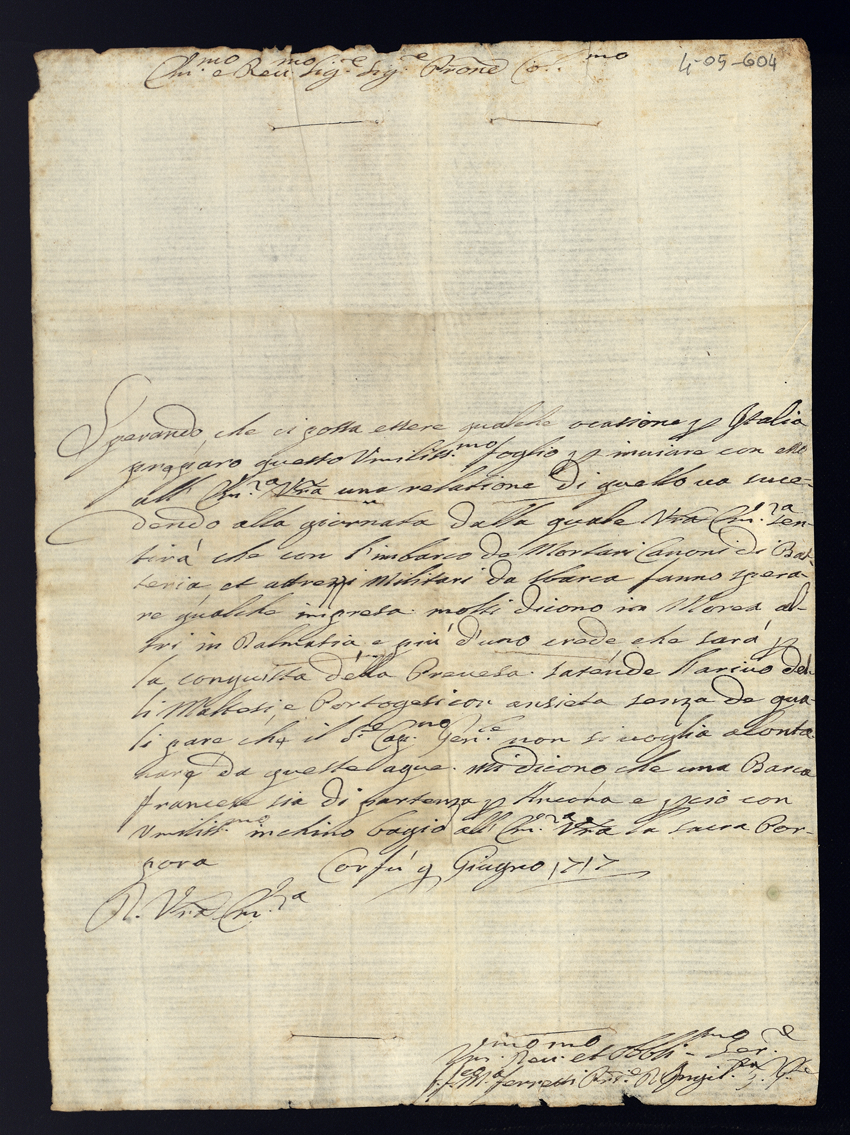 Em.mo e Rev.mo Sig.e Sig.e Prone Co..mo
4-05-604
Sperando, che ci possa essere qualche ocassione p Italia
preparo questo Vmiliss.mo foglio p inuiare con esso
all' Em.za Vra una relatione di quello ua suce-
dendo alla giornata dalla quale Vra Em.za sen-
tirá che con l'imbarco de Mortari Canoni di Bat-
teria, et attrezzi Militari da sbarco fanno spera-
re qualche impresa. molti dicono in Morea al-
tri in Dalmatia, e più d'uno crede che sarà p
la conquista della Preuesa. Satende l'ariuo del-
li Maltesi e Portogesi con ansietà senza de qua-
li pare che il S.e Cap.no Gen.le non si uoglia alonta
nare da queste aque. Mi dicono che una Barca
francese sia di partenza p Ancona e p ciò con
Vmiliss.mo inchino bagio all' Em.za Vra la sacra Por-
pora
Corfù 9 Giugno 1717
D. Vra Em.za
Vm.mo Deu.mo et Obbli-mo Ser.e
f. Ferretti